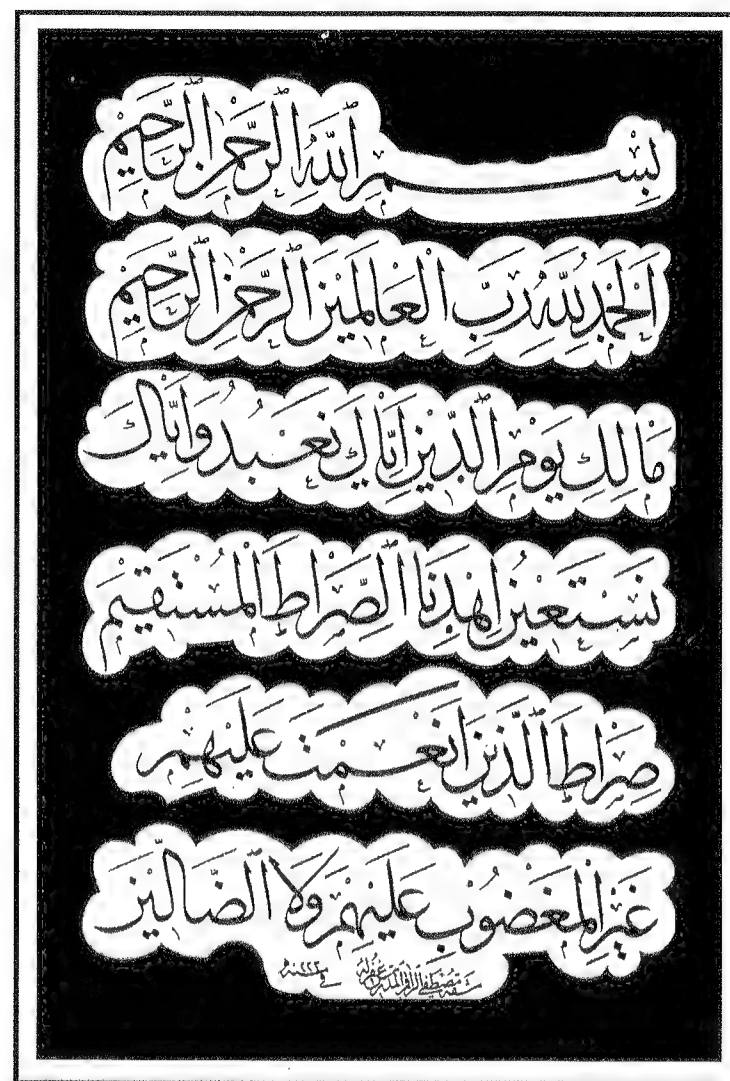 بِسْمِ اللّٰهِ الرَّحْمٰنِ الرَّحِيْمِ
اَلْحَمْدُ لِلّٰهِ رَبِّ الْعَالَمِيْنَ الرَّحْمٰنِ الرَّحِيْمِ
مَالِكِ يَوْمِ الدِّيْنِ اِيَّاكَ نَعْبُدُ وَاِيَّاكَ
نَسْتَعِيْنُ اِهْدِنَا الصِّرَاطَ الْمُسْتَقِيْمَ
صِرَاطَ الَّذِيْنَ اَنْعَمْتَ عَلَيْهِمْ
غَيْرِ الْمَغْضُوْبِ عَلَيْهِمْ وَلَا الضَّالِّيْنَ
مصطفى